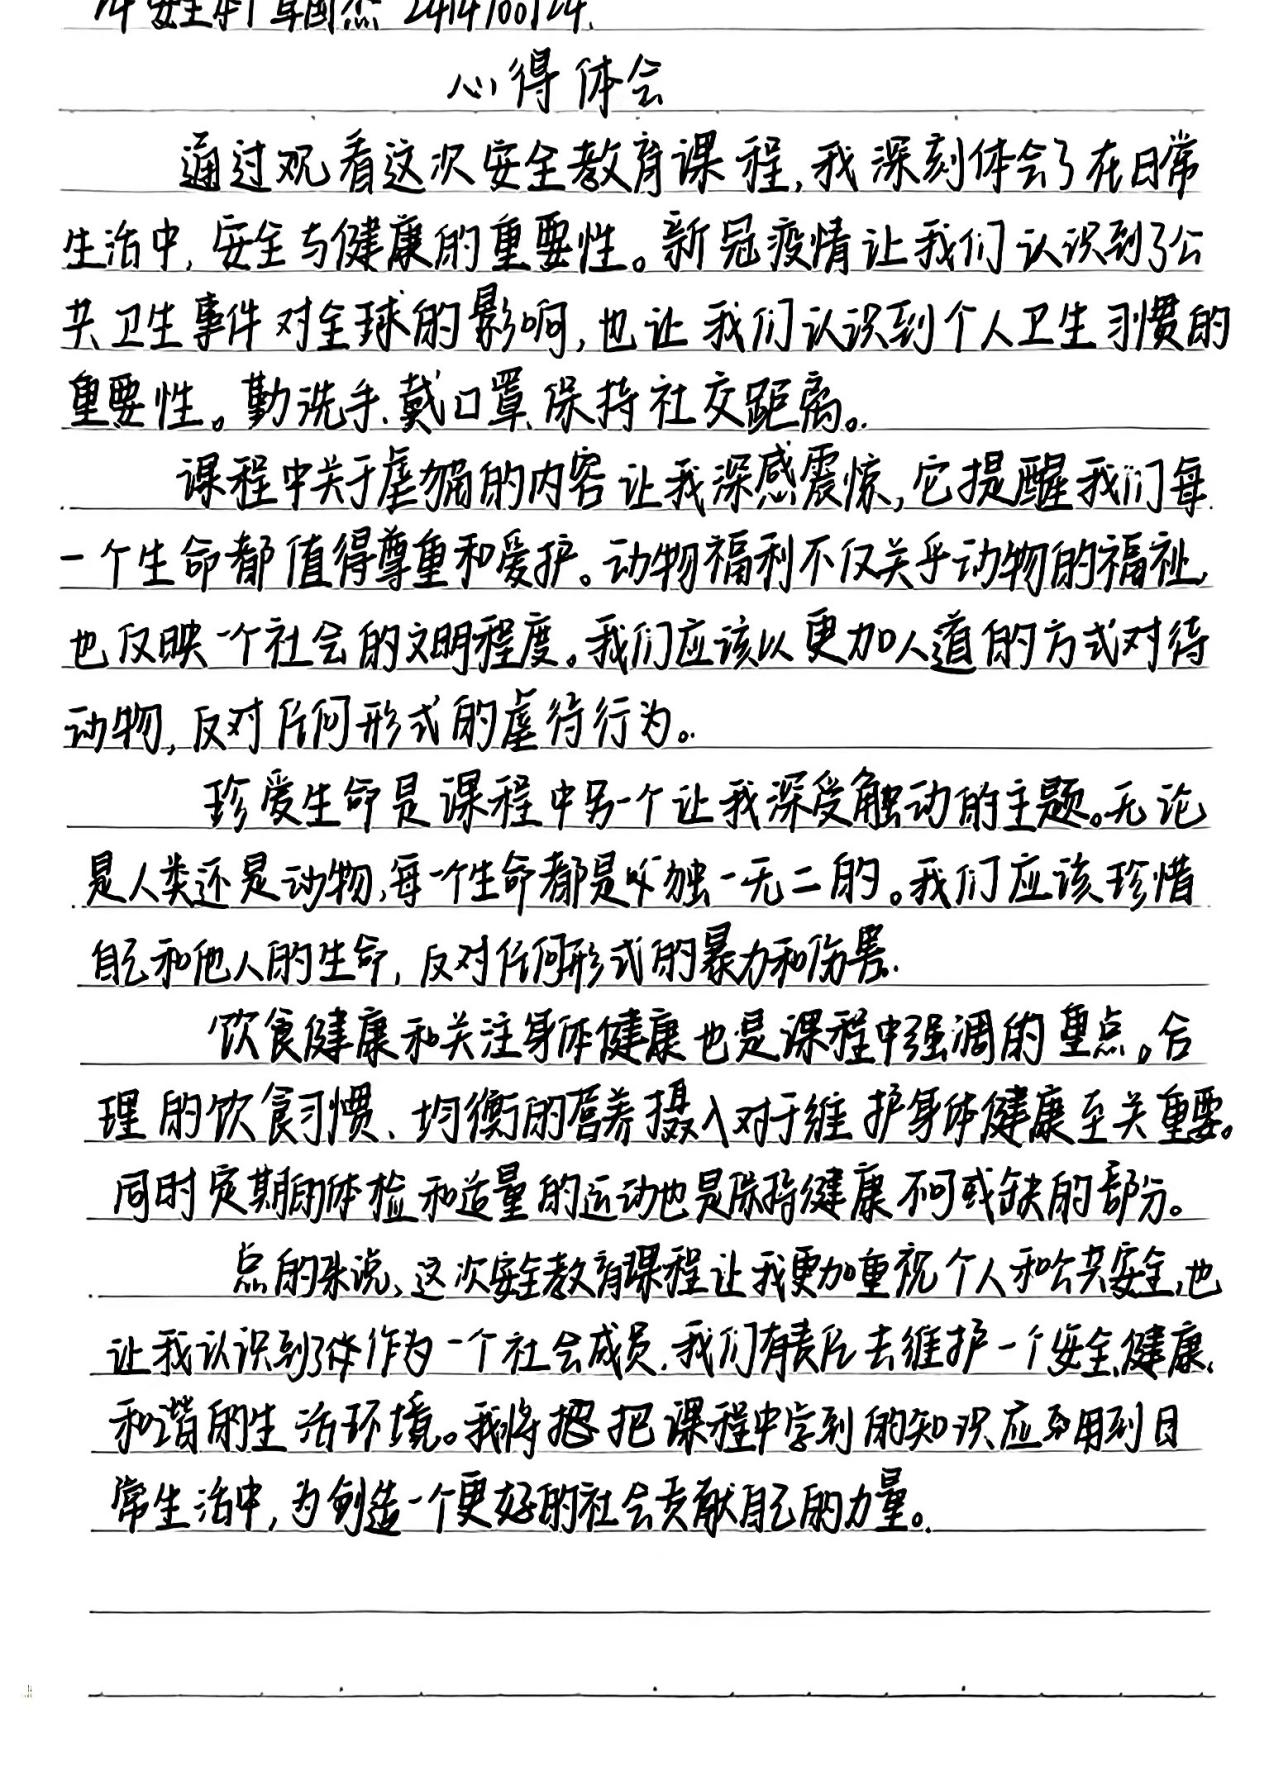 心得体会
通过观看这次安全教育课程,我深刻体会了在日常
生活中,安全与健康的重要性。新冠疫情让我们认识到了公
共卫生事件对全球的影响,也让我们认识到个人卫生习惯的
重要性。勤洗手、戴口罩、保持社交距离。
课程中关于虐猫的内容让我深感震惊,它提醒我们每
一个生命都值得尊重和爱护。动物福利不仅关乎动物的福祉,
也反映一个社会的文明程度。我们应该以更加人道的方式对待
动物,反对任何形式的虐待行为。
珍爱生命是课程中另一个让我深受触动的主题。无论
是人类还是动物,每一个生命都是独一无二的。我们应该珍惜
自己和他人的生命,反对任何形式的暴力和伤害.
饮食健康和关注身体健康也是课程中强调的重点。合
理的饮食习惯、均衡的营养摄入对于维护身体健康至关重要。
同时定期的体检和适量的运动也是保持健康不可或缺的部分。
点的来说,这次安全教育课程让我更加重视个人和公共安全,也
让我认识到了作为一个社会成员,我们有责任去维护一个安全、健康、
和谐的生活环境。我将把课程中学到的知识应用到日
常生活中,为创造一个更好的社会贡献自己的力量。